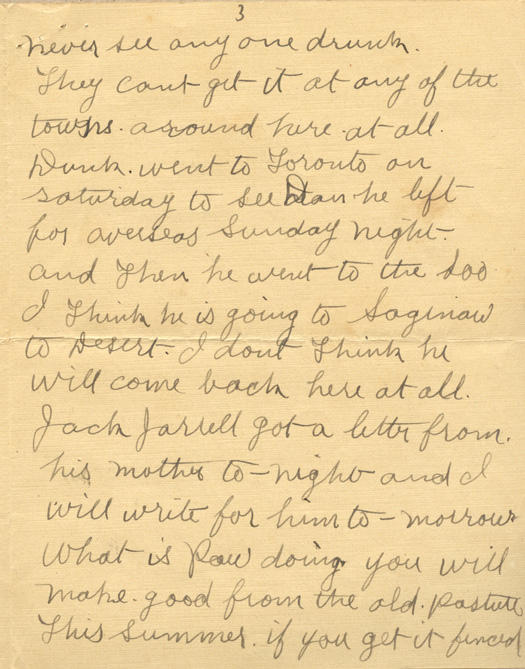 3
never see any one drunk.
They cant get it at any of the
towns. around here at all.
Dunk. went to Toronto on
saturday to see Dan he left
for overseas Sunday night.
and then he went to the Soo
I think he is going to Saginaw
to Desert. I dont think he
will come back here at all.
Jack Jarrell got a letter from.
his mother to-night and I
will write for him to-morrow
What is Paw doing. you will
make. good from the old. pasture
This summer. if you get it fenced